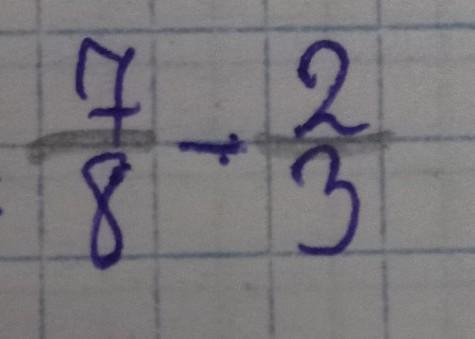 7/8 - 2/3